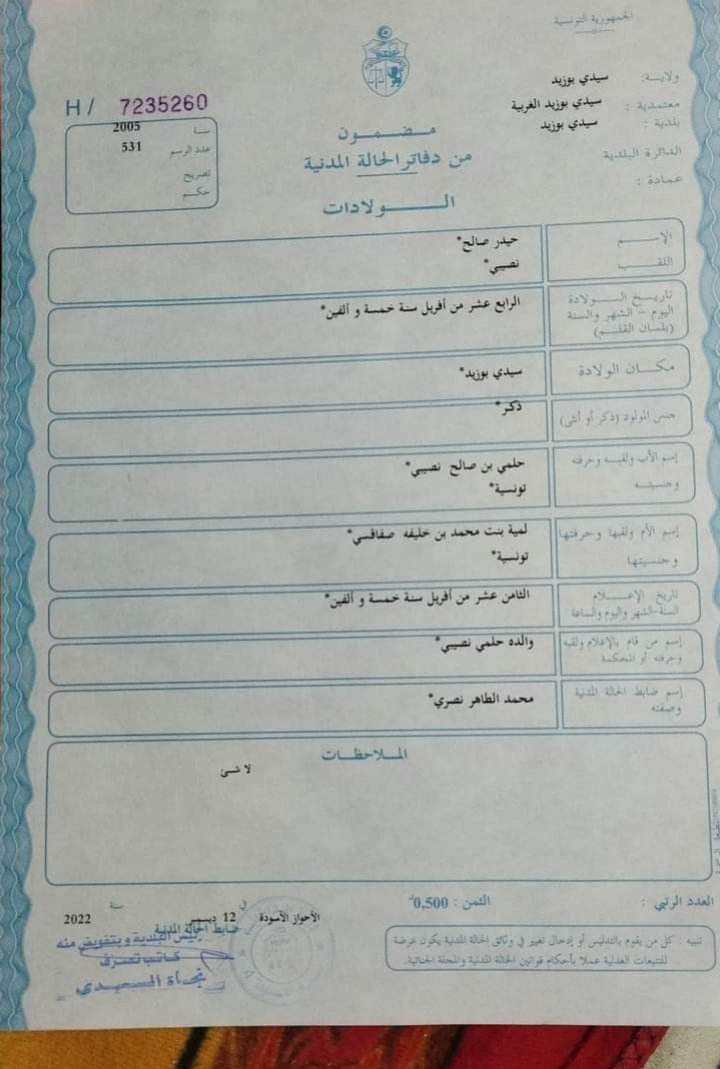 الجمهورية التونسية
ولاية: سيدي بوزيد
معتمدية : سيدي بوزيد الغربية
بلدية : سيدي بوزيد
الدائرة البلدية
عمادة :
H / 7235260
سنة 2005
عدد الرسم 531
تصريح
حكم
مضمون
من دفاتر الحالة المدنية
الولادات
الإسم حيدر صالح*
اللقب نصيبي*
تاريخ الولادة
اليوم - الشهر والسنة
(بلسان القلم)
الرابع عشر من أفريل سنة خمسة و ألفين*
مكان الولادة سيدي بوزيد*
جنس المولود (ذكر أو أنثى) ذكر*
إسم الأب ولقبه وحرفته حلمي بن صالح نصيبي*
وجنسيته تونسية*
إسم الأم ولقبها وحرفتها لمية بنت محمد بن خليفه صفاقسي*
وجنسيتها تونسية*
تاريخ الإعلام الثامن عشر من أفريل سنة خمسة و ألفين*
السنة-الشهر واليوم والساعة
إسم من قام بالإعلام ولقبه والده حلمي نصيبي*
وحرفته أو المحكمة
إسم ضابط الحالة المدنية محمد الطاهر نصري*
وصفته
الملاحظات
لا شئ
العدد الرتبي :
الثمن : 0,500د
في سنة
الأحواز الأسودة 12 ديسمبر 2022
ضابط الحالة المدنية
رئيس البلدية وبتفويض منه
كاتب تصرف
نجاة السعيدي
تنبيه : كل من يقوم بالتدليس أو إدخال تغيير في وثائق الحالة المدنية يكون عرضة
للتتبعات العدلية عملا بأحكام قوانين الحالة المدنية والمجلة الجنائية.